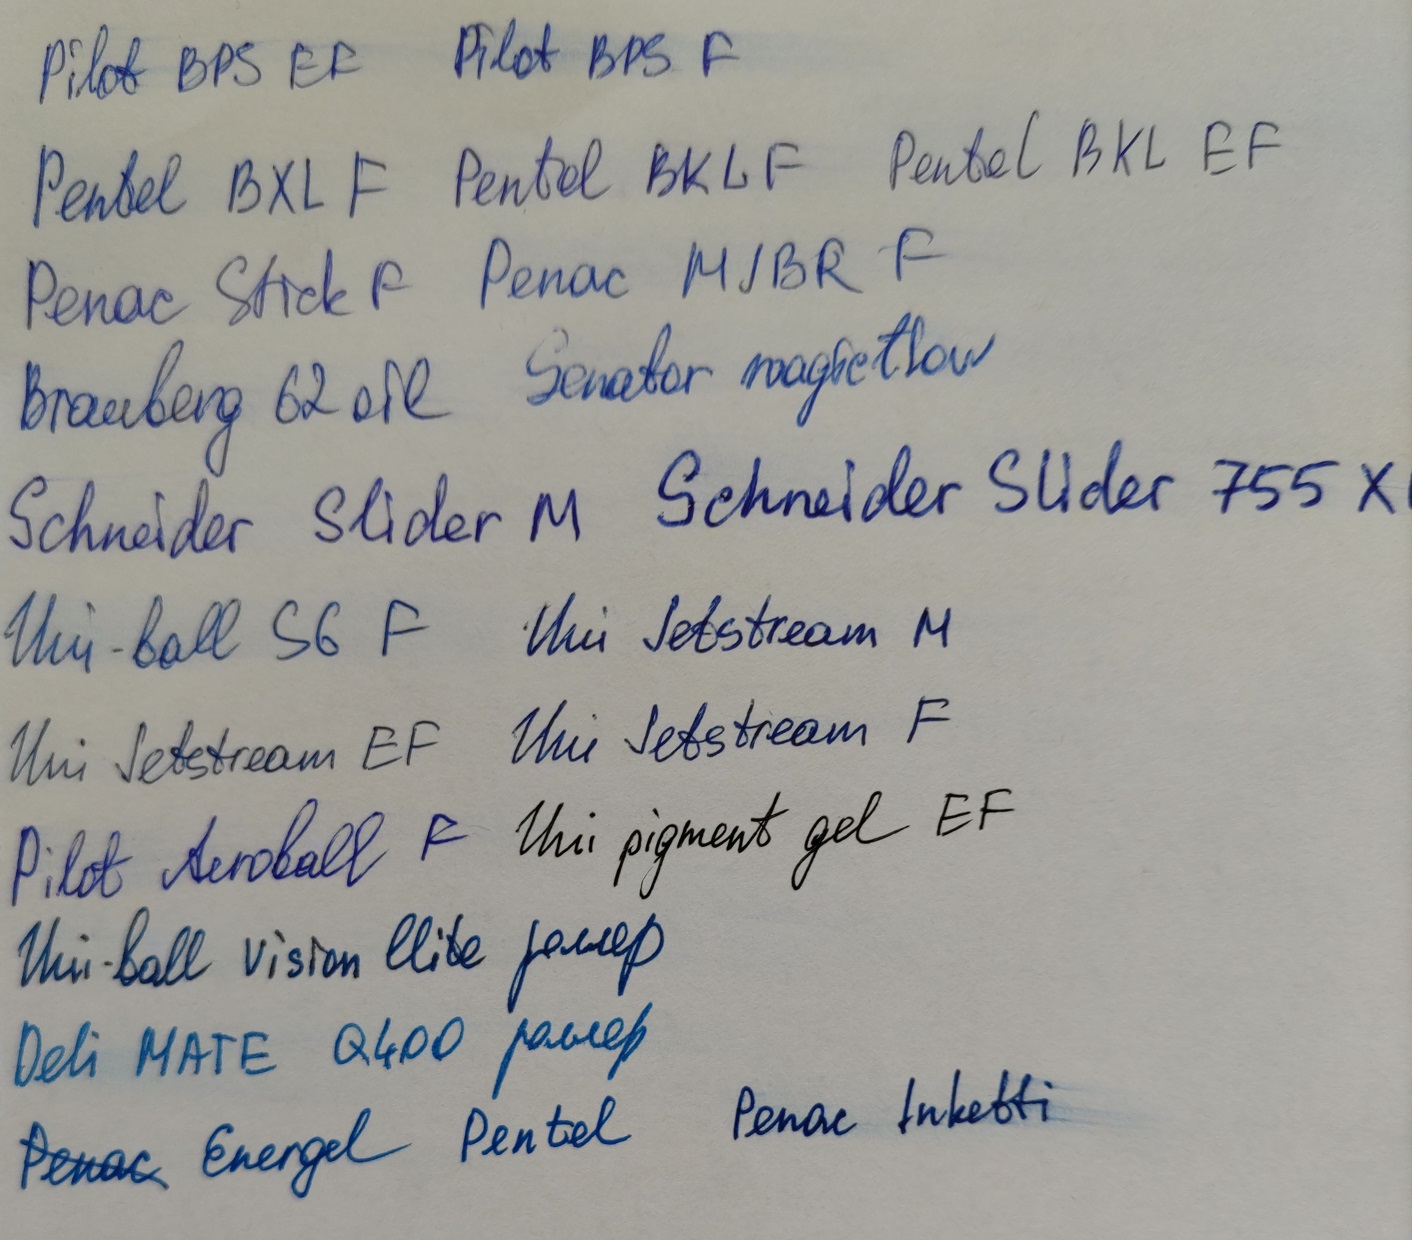 Pilot BPS EF Pilot BPS F
Pentel BXL F Pentel BKL F Pentel BKL EF
Penac Stick F Penac M/BR F
Brauberg 62 oil Senator magicflow
Schneider Slider M Schneider Slider 755 X
Uni-ball SG F Uni Jetstream M
Uni Jetstream EF Uni Jetstream F
Pilot Aeroball F Uni pigment gel EF
Uni-ball vision Elite роллер
Deli MATE Q400 роллер
Penac Energel Pentel Penac Inketti